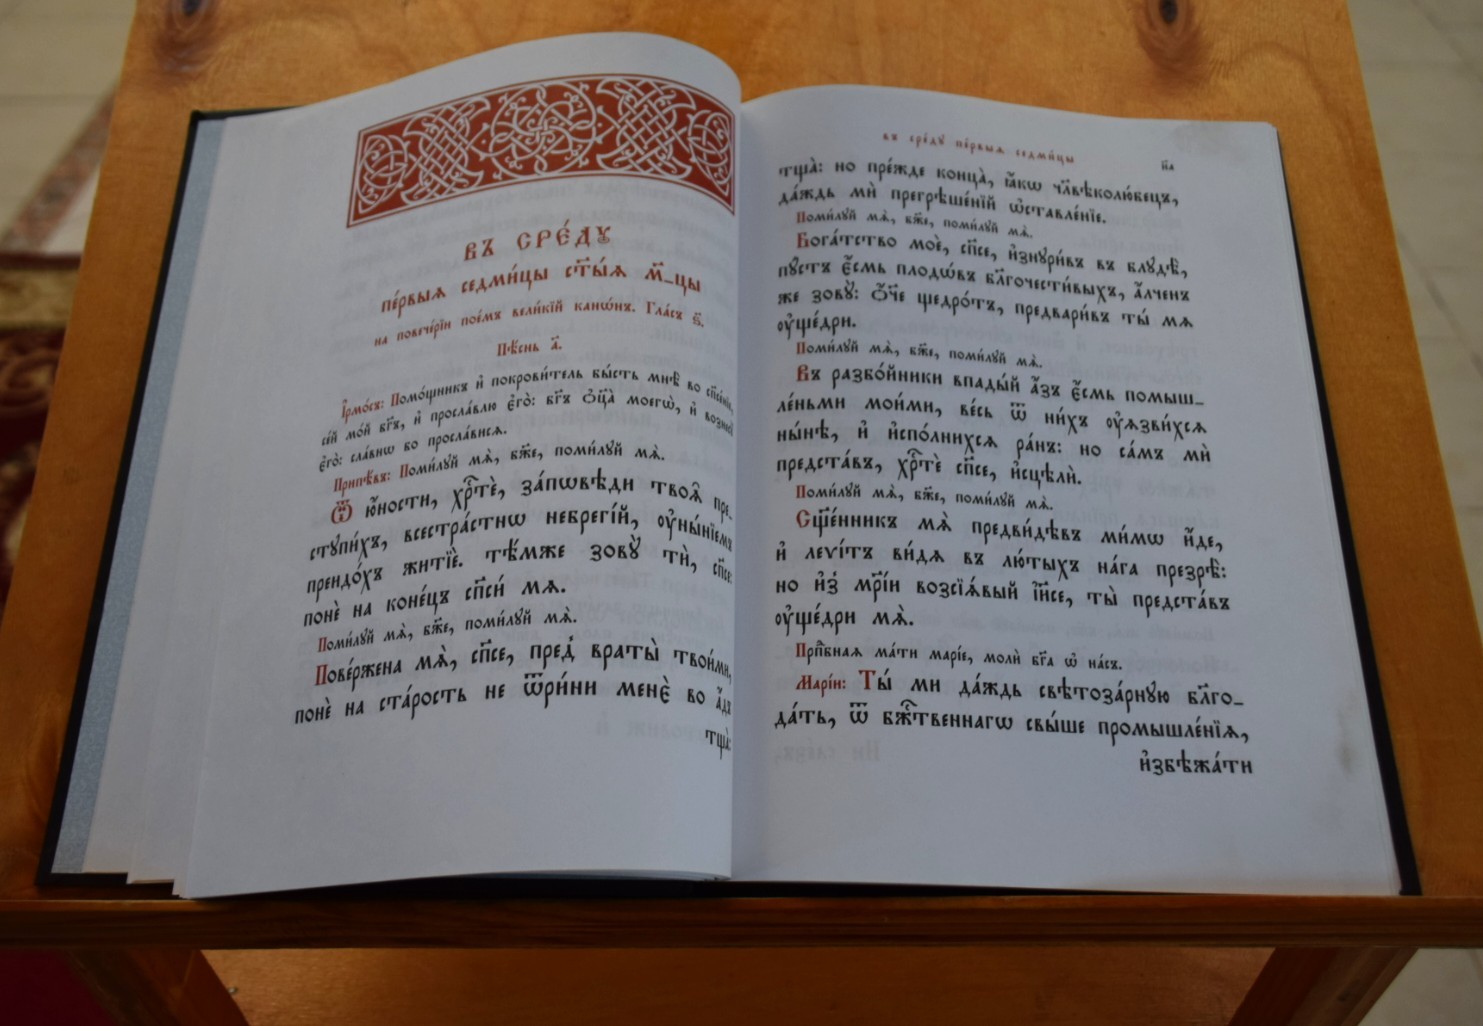 въ сре́дꙋ
пе́рвыѧ седми́цы ст҃ы́ѧ м҃-цы
на повече́рїи пое́мъ вели́кїй канѡ́нъ. Гла́съ ѕ҃.
Пѣ́снь а҃.
І҆рмо́съ: Помо́щникъ и҆ покрови́тель бы́сть мнѣ̀ во спⷭ҇е́нїе,
се́й мо́й бг҃ъ, и҆ просла́влю є҆го̀: бг҃ъ ѻ҆ц҃а̀ моегѡ̀, и҆ вознесꙋ̀
є҆го̀: сла́внѡ во просла́висѧ.
Припѣ́въ: Поми́лꙋй мѧ̀, бж҃е, поми́лꙋй мѧ̀.
Ѿ ю҆́ности, хрⷭ҇тѐ, за́пѡвѣди твоѧ̑ пре-
стꙋпи́хъ, всестра́стнѡ небрегі́й, ᲂу҆ны́нїемъ
преидо́хъ житїѐ. тѣ́мже зовꙋ́ тѝ, сп҃се:
понѐ на коне́цъ сп҃си́ мѧ.
Поми́лꙋй мѧ̀, бж҃е, поми́лꙋй мѧ̀.
Пове́ржена мѧ̀, сп҃се, пред̾ враты̀ твои́ми,
понѐ на ста́рость не ѿри́ни менє̀ во а҆́дъ
тща̀:
въ сре́дꙋ пе́рвыѧ седми́цы
тща̀: но пре́жде конца̀, ꙗ҆́кѡ чл҃вѣколю́бецъ,
да́ждь мѝ прегрѣше́нїй ѡ҆ставле́нїе.
Поми́лꙋй мѧ̀, бж҃е, поми́лꙋй мѧ̀.
Бога́тство моѐ, сп҃се, и҆знꙋри́въ въ блꙋдѣ̀,
пꙋ́стъ є҆́смь плодѡ́въ бл҃гочести́выхъ, а҆́лченъ
же зовꙋ̀: ѻ҆́ч҃е щедро́тъ, предвари́въ ты́ мѧ
ᲂу҆ще́дри.
Поми́лꙋй мѧ̀, бж҃е, поми́лꙋй мѧ̀.
Въ разбо́йники впады́й а҆́зъ є҆́смь помыш-
ле́ньми мои́ми, ве́сь ѿ ни́хъ ᲂу҆ѧзви́хсѧ
ны́нѣ, и҆ и҆спо́лнихсѧ ра́нъ: но са́мъ мѝ
предста́въ, хрⷭ҇тѐ сп҃се, и҆сцѣлѝ.
Поми́лꙋй мѧ̀, бж҃е, поми́лꙋй мѧ̀.
Сщ҃е́нникъ мѧ̀ предви́дѣвъ ми́мѡ и҆́де,
и҆ леѵі́тъ ви́дѧ въ лю́тыхъ на́га презрѣ̀:
но и҆з̾ мр҃і́и возсїѧ́вый і҆и҃се, ты̀ предста́въ
ᲂу҆ще́дри мѧ̀.
Прпⷣбнаѧ ма́ти марі́е, молѝ бг҃а ѡ҆ на́съ.
Марі́и: Ты́ ми да́ждь свѣтоза́рнꙋю бл҃го-
да́ть, ѿ бжⷭ҇твеннагѡ свы́ше промышле́нїѧ,
и҆збѣжа́ти